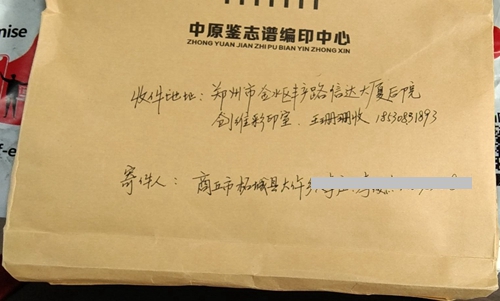 中原鉴志谱编印中心
ZHONG YUAN JIAN ZHI PU BIAN YIN ZHONG XIN
收件地址：郑州市金水区丰产路信达大厦后院
创维彩印室 王珊珊收 18530831893
寄件人：商丘市柘城县大仵乡
mise
f-e